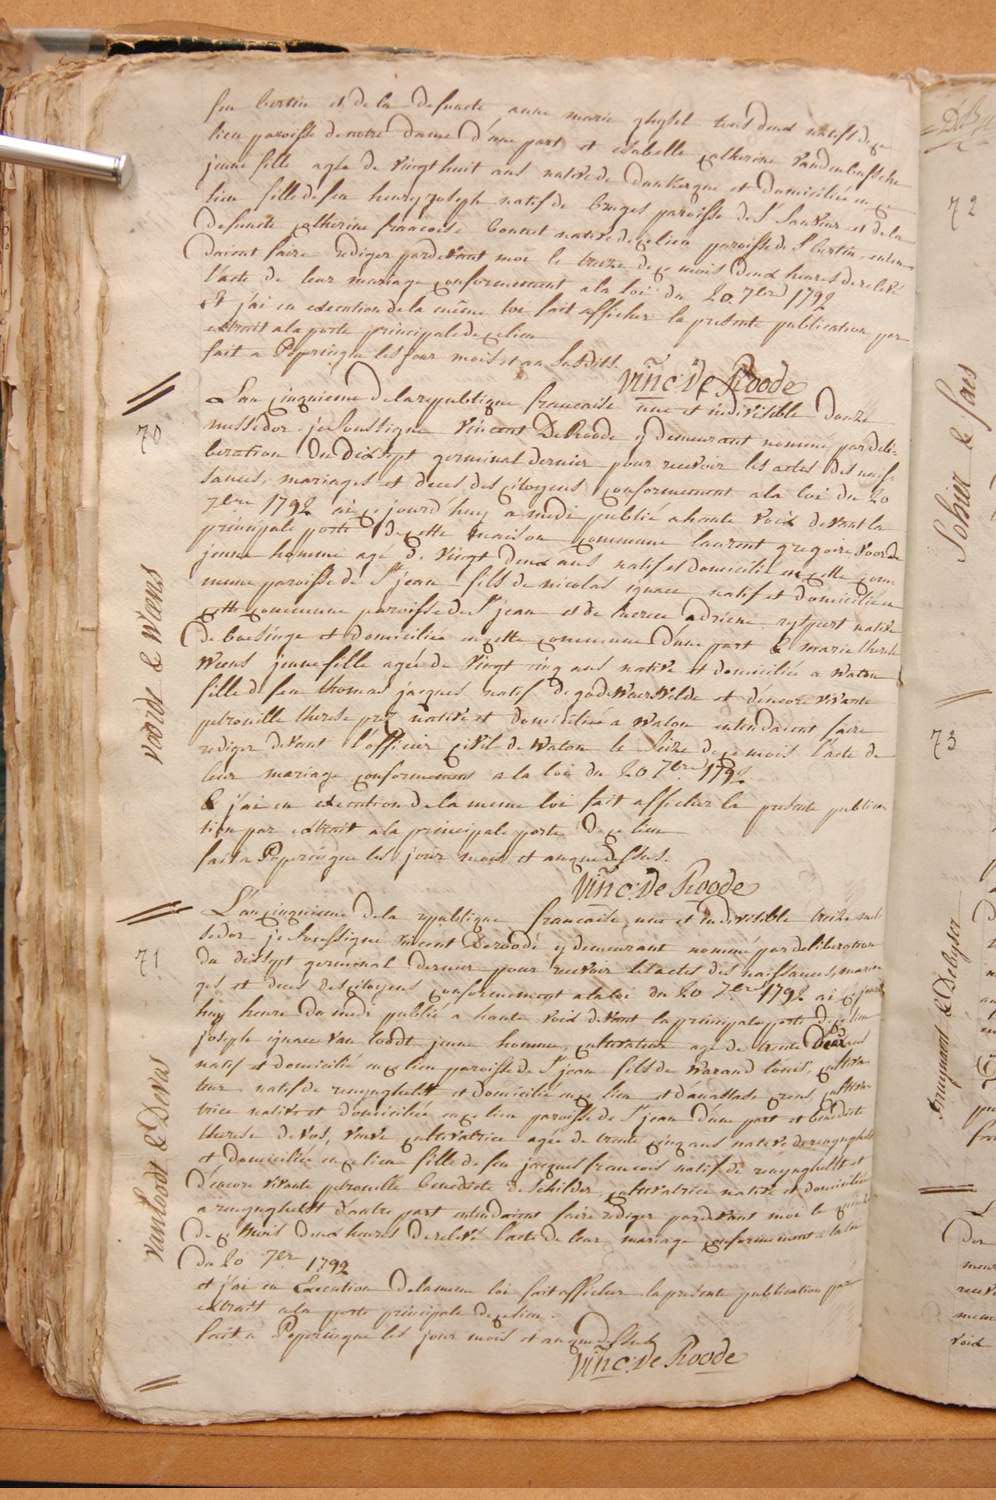 feu bertin et de la defuncte anne marie ghysel tous deux natifs de ce
lieu paroisse de notre dame d'une part et isabelle catherine vandenbussche
jeune fille agée de vingt huit ans native de dunkerque et domiciliée en ce
lieu fille de feu henry joseph natif de bruges paroisse de St Sauveur et de la
defuncte catherine francoise bonnet native de ce lieu paroisse de St bertin, enten-
daient faire rediger pardevant moi le treize de ce mois deux heures de relevé
l'acte de leur mariage conformement a la loi du 20 7bre 1792
Et j'ai en execution de la même loi fait afficher la presente publication par
extrait a la porte principale de ce lieu
fait a Poperingue les jour mois et an susdits.
Vinc: De Roode
70
L'an cinquieme de la republique francaise une et indivisible douze
messidor je soussigné Vincent DeRoode y demeurant nommé par deli-
beration du dixsept germinal dernier pour recevoir les actes des nais-
sances, mariages et deces des citoyens conformement a la loi du 20
7bre 1792 ai ce jourd'huy a midi publié a haute voix devant la
principale porte de cette maison commune laurent gregoire Voorde
jeune homme agé de vingt deux ans natif et domicilié en cette com-
mune paroisse de St jean fils de nicolas ignace natif et domicilié en
cette commune paroisse de St jean et de therese adriene ryspert native
de boesinge et domiciliée en cette commune d'une part & marie therese
Weens jeune fille agée de vingt cinq ans native et domiciliée a Watou
fille de feu thomas jacques natif de godewaersvelde et d'encore vivante
petronille therese native et domiciliée a Watou entendaient faire
rediger devant l'officier civil de Watou le seize de ce mois l'acte de
leur mariage conformement a la loi du 20 7bre 1792
& j'ai en execution de la meme loi fait afficher la presente publica-
tion par extrait a la principale porte de ce lieu
fait a Poperingue les jour mois et an que dessus.
Vinc: De Roode
voorde & Weens
71
L'an cinquieme de la republique francaise, une et indivisible treize mes-
sidor je soussigné vincent Deroode y demeurant nommé par deliberation
du dixsept germinal dernier pour recevoir les actes des naissances, maria-
ges et deces des citoyens conformement a la loi du 20 7bre 1792 ai ce jourd
huy heure du midi publié a haute voix devant la principale porte de ce lieu
joseph ignace van loodt jeune homme, cultivateur agé de trente deux ans
natif et domicilié en ce lieu paroisse de St jean fils de Warand louis, cultiva-
teur natif de renynghelst et domicilié en ce lieu et d'anastasie cultiva-
trice native et domiciliée en ce lieu paroisse de St jean d'une part et benedicte
therese devos, veuve cultivatrice agée de trente cinq ans native de renynghelst
et domiciliée en ce lieu fille de feu jacques francois natif de renynghelst et
d'encore vivante petronille benedicte deschilder cultivatrice native et domiciliée
a renynghelst d'autre part entendaient faire rediger pardevant moi le
de ce mois deux heures de relevé l'acte de leur mariage conformement a la loi
du 20 7bre 1792
et j'ai en Execution de la meme loi fait afficher la presente publication par
extrait a la porte principale de ce lieu.
fait a Poperingue les jour mois et an que dessus
Vinc: De Roode
vanloodt & Devos
72
Sohier & sars
73
Bruynant & Debyser